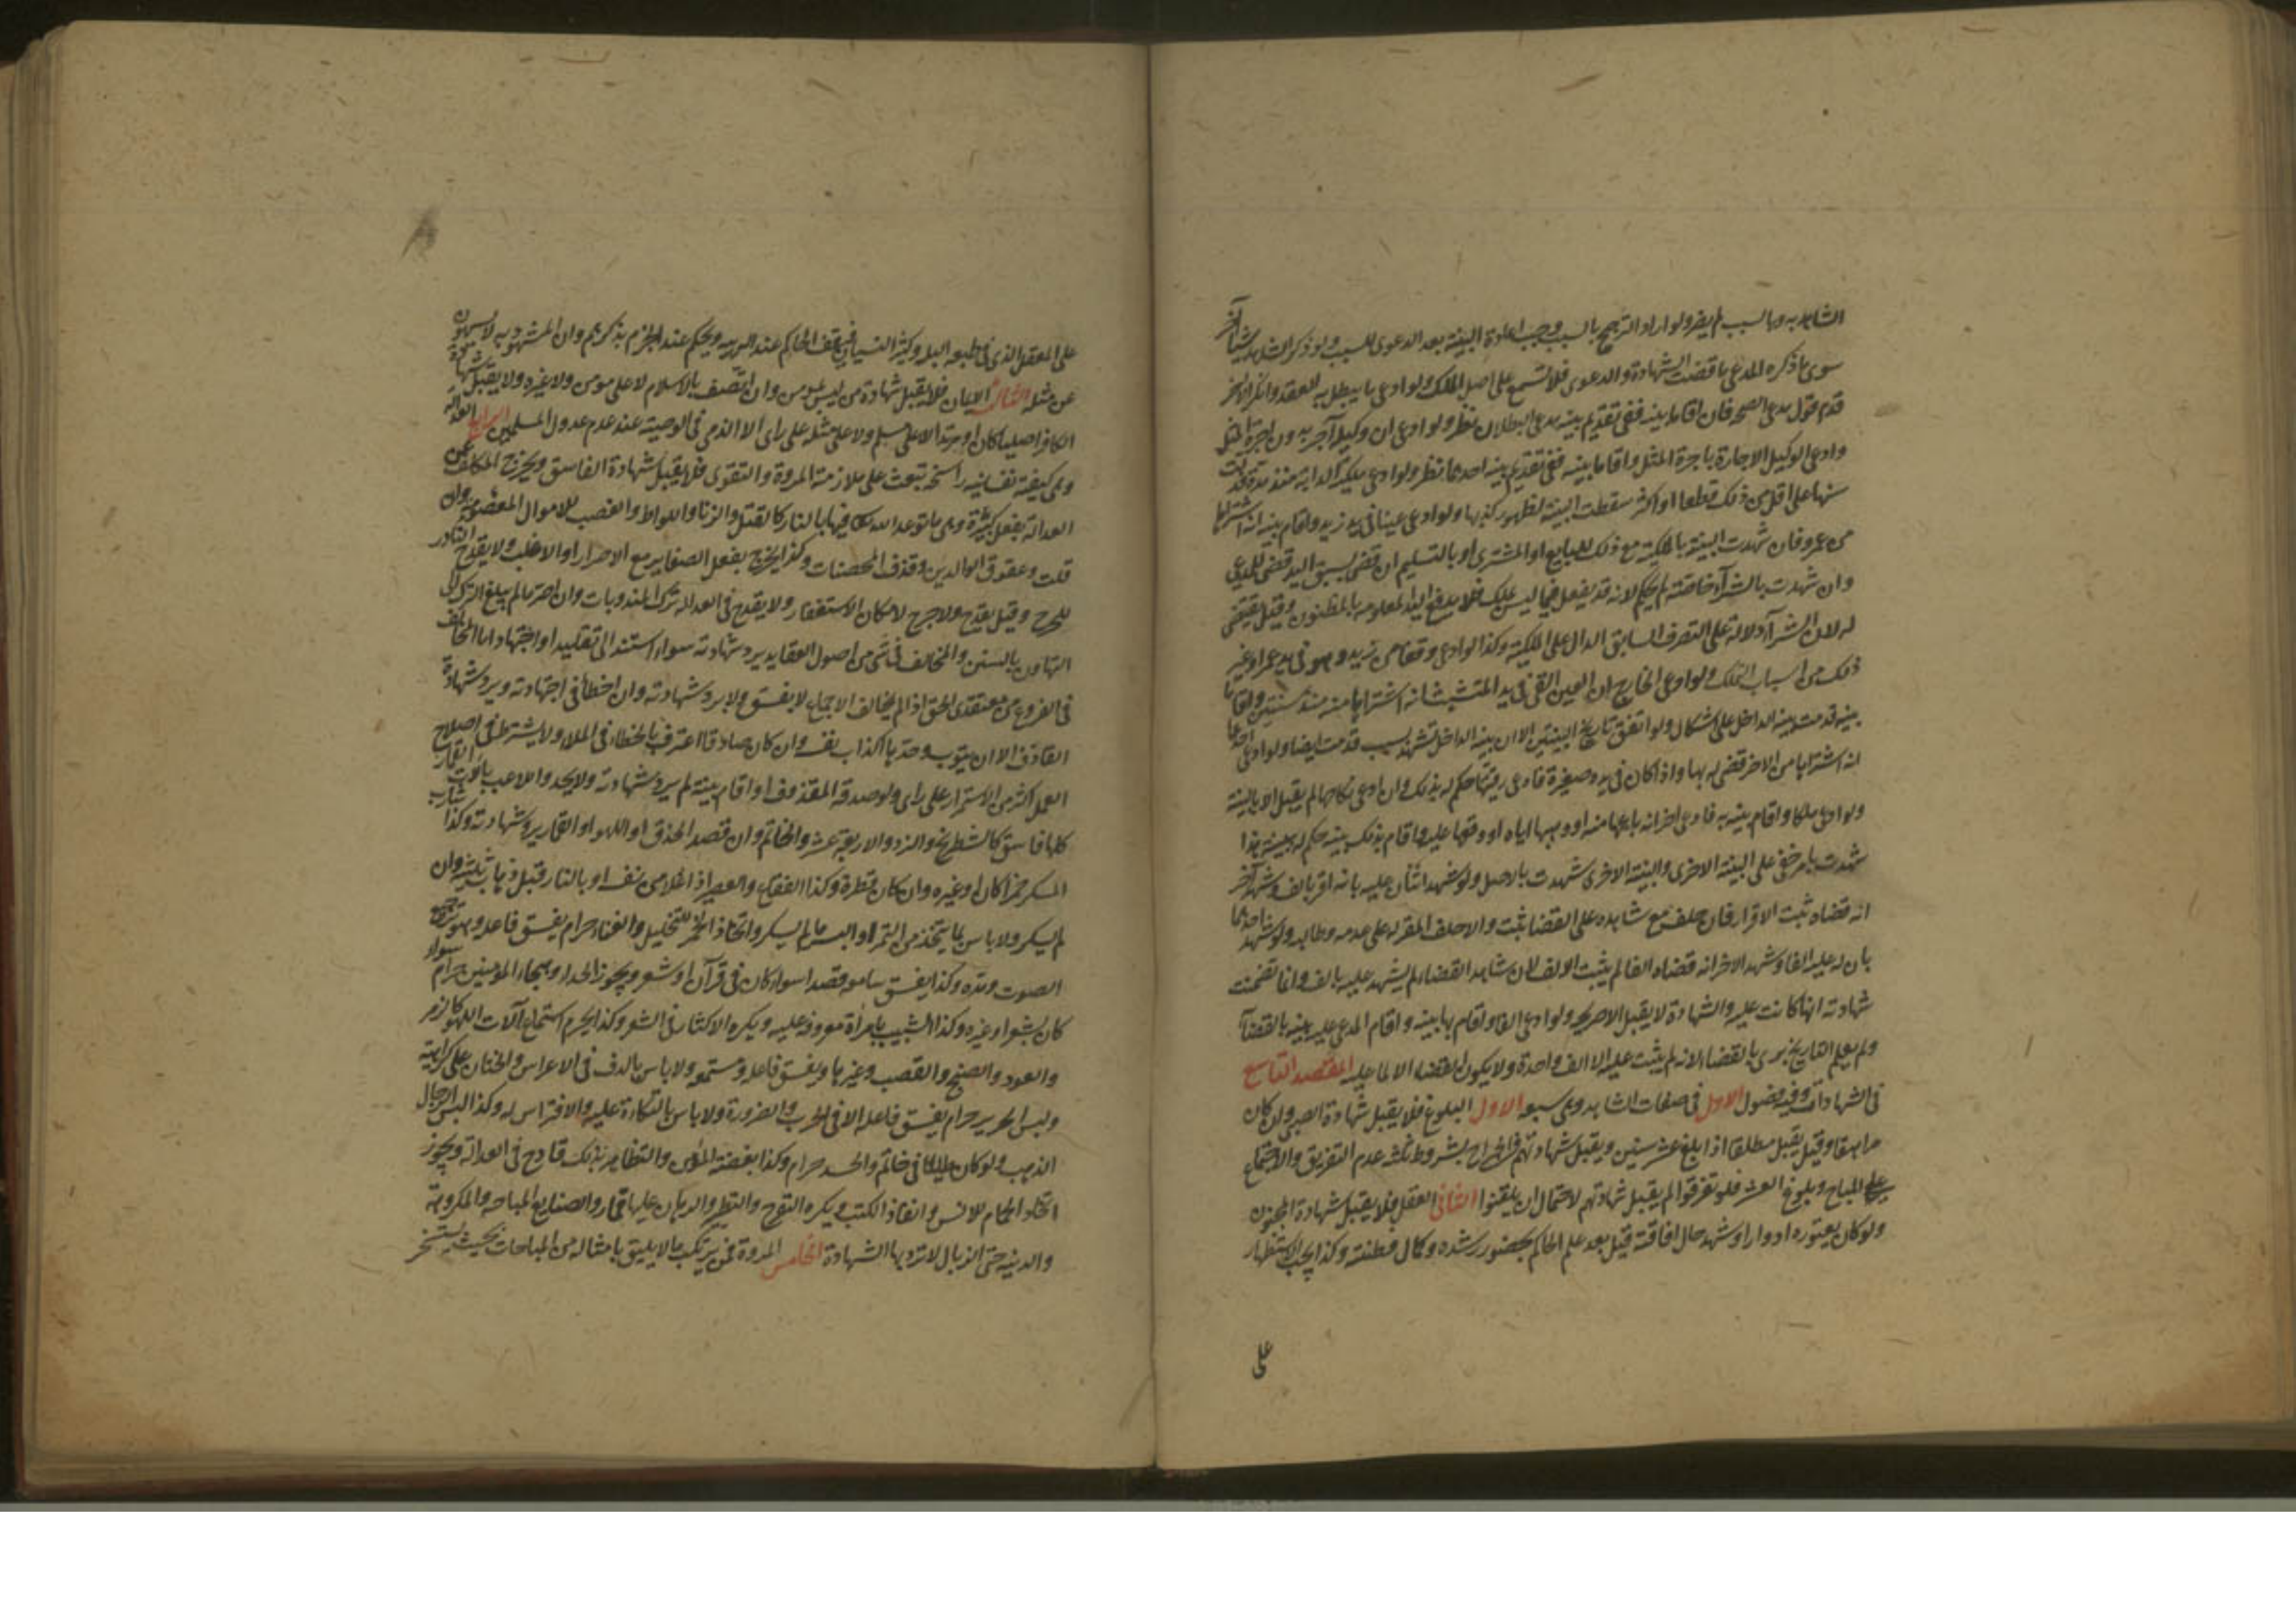 الشاهد به وبالسبب لم يضر ولو اراد الترجيح بالسبب وجب اعادة البينة بعد الدعوى للسبب ولو ذكر الشاهد سببا آخر
سوى ما ذكره المدعى تناقضت الشهادة والدعوى فلا تسمع على اصل الملك ولو ادعى ما يبطل به العقد وانكر الآخر
قدم قول مدعى الصحة فان اقاما بينه ففى تقديم بينه مدعى البطلان نظر ولو ادعى ان وكيله آجر بدون اجرة المثل
وادعى الوكيل الاجارة باجرة المثل واقاما بينه ففى تقديم بينه احدهما نظر ولو ادعى ملكية الدابه منذ مدة فدلت
سنها على اقل من ذلك قطعا او اكثر سقطت البينة لظهور كذبها ولو ادعى عينا فى يد زيد واقام بينه انه اشتراها
من عمرو فان شهدت البينة بالملكية مع ذلك للبايع او المشترى او بالتسليم ان قضى بسبق اليد قضى للمدعى
وان شهدت بالشرآء خاصة لم يحكم لانه قد يفعل فيما ليس بملك فلا يدفع اليد المعلومه بالمظنون وقيل يقضى
له لان الشرآء دلالة على التصرف السابق الدال على الملكية وكذا لو ادعى وقفا من زيد وهو فى يد عمرو او غير
ذلك من اسباب التملك ولو ادعى الخارج ان العين التى فى يد المتشبث انه اشتراها منه منذ سنتين واقاما
بينه قدمت بينه الداخل على اشكال ولو اتفق تاريخ البينتين الا ان بينه الداخل تشهد بسبب قدمت ايضا ولو ادعى احدهما
انه اشتراها من الاخر قضى له بها واذا كان فى يده صغيرة فادعى رقيتها حكم له بذلك وان ادعى نكاحها لم يقبل الا بالبينة
ولو ادعى ملكا واقام بينه به فادعى اخر انه باعها منه او وهبها اياه او وقفها عليه واقام بذلك بينه حكم له ببينته لهذا
شهدت بامر خفى على البينه الاخرى والبينه الاخرى شهدت بالاصل ولو شهد اثنان عليه بانه اقر بالف وشهد آخر
انه قضاه ثبت الاقرار فان حلف مع شاهده على القضا ثبت والا حلف المقر له على عدمه وطالبه ولو شهد احدهما
بان له عليه الفا وشهد الاخر انه قضاه الفا لم يثبت الالف لان شاهد القضاء لم يشهد عليه بالف وانما تضمنت
شهادته انها كانت عليه والشهادة لا يقبل الا صريحه ولو ادعى الفا واقام بها بينه واقام المدعى عليه بينه بالقضآء
ولم يعلم التاريخ برى بالقضاء لانه لم يثبت عليه الا الف واحدة ولا يكون القضاء الا لما عليه المقصد التاسع
فى الشهادات وفيه فصول الاول فى صفات الشاهد وهى سبعه الاول البلوغ فلا يقبل شهادة الصبى وان كان
مراهقا وقيل يقبل مطلقا اذا بلغ عشر سنين ويقبل شهادتهم فى الجراح بشروط ثلثه عدم التفريق والاجتماع
على المباح وبلوغ العشر فلو تفرقوا لم يقبل شهادتهم لاحتمال ان يلقنوا الثانى العقل فلا يقبل شهادة المجنون
ولو كان يعتوره ادوارا وشهد حال افاقته قبل بعد علم الحاكم بحضور رشده وكمال فطنته وكذا يجب الاستظهار
على
على المغفل الذى فى طبعه البله وكثير النسيان فيتوقف الحاكم عند الريبه ويحكم عند الجزم بذكرهم وان المشهود به لا يسهون
عن مثله الثالث الايمان فلا يقبل شهادة من ليس بمؤمن وان اتصف بالاسلام لا على مومن ولا غيره ولا يقبل شهادة
الكافر اصليا كان او مرتدا لا على مسلم ولا على مثله على راى الا الذمى فى الوصيه عند عدم عدول المسلمين الرابع العداله
وهى كيفيه نفسانيه راسخه تبعث على ملازمة المروة والتقوى فلا يقبل شهادة الفاسق ويخرج المكلف عن
العدالة بفعل كبيرة وهى ما توعد الله تعالى فيها بالنار كالقتل والزنا واللواط والغصب للاموال المعصومه وان
قلت وعقوق الوالدين وقذف المحصنات وكذا يخرج بفعل الصغاير مع الاصرار او الاغلب ولا يقدح النادر
للحرج وقيل يقدح ولا حرج لامكان الاستغفار ولا يقدح فى العداله ترك المندوبات وان اصر ما لم يبلغ الترك الى
التهاون بالسنن والمخالف فى شى من اصول العقايد يرد شهادته سواء استند الى تقليد او اجتهاد اما المخالف
فى الفروع من معتقدى الحق اذا لم يخالف الاجماع لا يفسق ولا يرد شهادته وان اخطأ فى اجتهاده ويرد شهادة
القاذف الا ان يتوب وحده باكذاب نفسه وان كان صادقا اعترف بالخطاء فى الملاء ولا يشترط فى اصلاح
العمل اكثر من الاستمرار على راى ولو صدقه المقذوف او اقام بينة لم يرد شهادته ولا يحد واللاعب بآلات القمار
كلها فاسق كالشطرنج والنرد والاربعة عشر والخاتم وان قصد الحذق او اللهو او القمار يرد شهادته وكذا شارب
المسكر خمرا كان او غيره وان كان قطرة وكذا الفقاع والعصير اذا غلا من نفسه او بالنار قبل ذهاب ثلثيه وان
لم يسكر ولا باس بما يتخذ من التمر او البسر ما لم يسكر واتخاذ الخمر للتخليل والغناء حرام يفسق فاعله وهو ترجيع
الصوت ومده وكذا يفسق سامعه قصدا سواء كان فى قرآن او شعر ويجوز الحداء وهجاء المؤمنين حرام سواء
كان بشعر او غيره وكذا التشبيب بامرأة معروفه عليه ويكره الاكثار فى الشعر وكذا يحرم استماع آلات اللهو كالزمر
والعود والصنج والقصب وغيرها ويفسق فاعله ومستمعه ولا باس بالدف فى الاعراس والختان على كراهية
ولبس الحرير حرام يفسق فاعله الا فى الحرب والضرورة ولا باس بالتكاءة عليه والافتراش له وكذا لبس الرجال
الذهب ولو كان طليا فى خاتم والحسد حرام وكذا بغضة المؤمن والتظاهر بذلك قادح فى العدالة ويجوز
اتخاذ الحمام للانس وانفاذ الكتب ويكره التفرج والتطير والرهان عليها قمار والصنايع المباحه والمكروهة
والدنيه حتى الزبال لا ترد بها الشهادة الخامس المروة فمن يرتكب ما لا يليق بامثاله من المباحات بحيث يستسخر